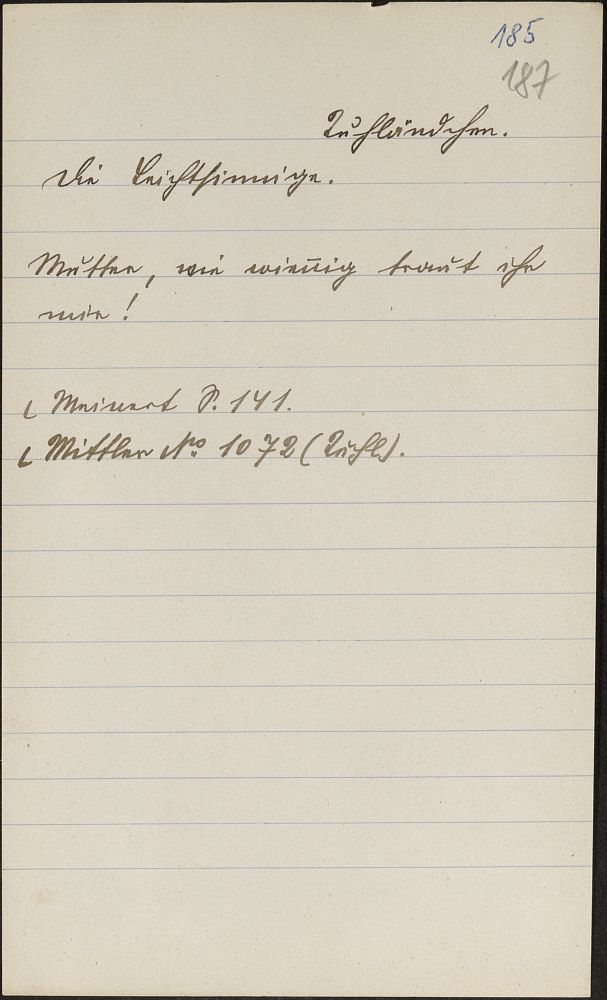 185
187
Kuhländchen.
Die Leichtsinnige.
Mutter, wie wieñig traut ihr
mir!
Meinert S. 141.
Mittler No 1072 (Kuhl.).